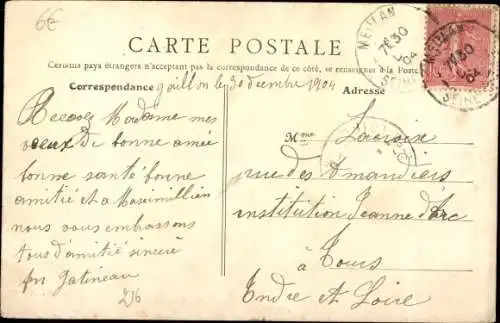 6€
CARTE POSTALE
Certains pays étrangers n'acceptant pas la correspondance de ce côté, se renseigner à la Poste
Correspondance
Adresse
30 decembre 1904
Recevez Madame mes
voeux de bonne année
bonne santé bonne
amitié et a Maximillien
nous vous embrassons
tous d'amitié sincere
Gatineau
216
Mme Lacroix
rue des Amandiers
institution Jeanne d'Arc
à Tours
Indre et Loire
MEULAN
7E 30
04
MEULAN
7E 30
04